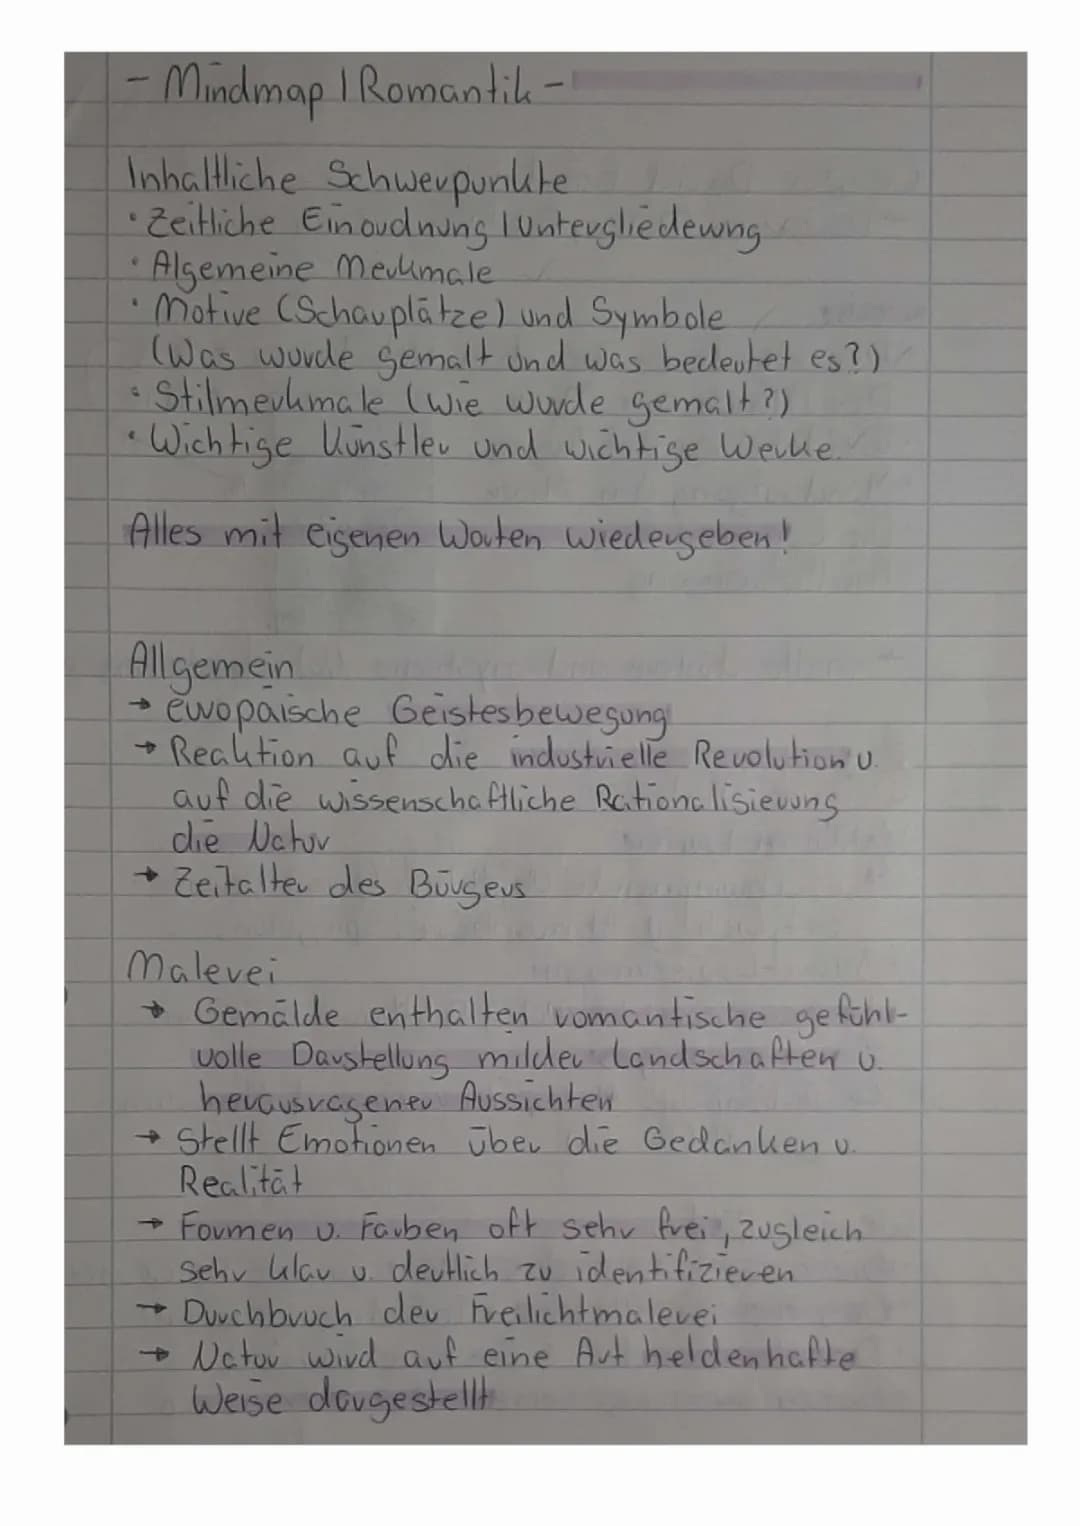 - Mindmap | Romantik -
Inhaltliche Schwerpunkte
• Zeitliche Einordnung | Untergliederung
• Algemeine Merkmale
• Motive (Schauplätze) und Symbole
(Was wurde gemalt und was bedeutet es?)
• Stilmerkmale (Wie wurde gemalt?)
• Wichtige Künstler und wichtige Werke.
Alles mit eigenen Worten wiedergeben!
Allgemein
→ europäische Geistesbewegung
→ Reaktion auf die industrielle Revolution u.
auf die wissenschaftliche Rationalisierung
die Natur
→ Zeitalter des Bürgers
Malerei
→ Gemälde enthalten romantische gefühl-
volle Darstellung milder Landschaften u.
herausragener Aussichten
→ Stellt Emotionen über die Gedanken u.
Realität
→ Formen u. Farben oft sehr frei, zugleich
sehr klar u. deutlich zu identifizieren
→ Durchbruch der Freilichtmalerei
→ Natur wird auf eine Art heldenhafte
Weise dargestellt